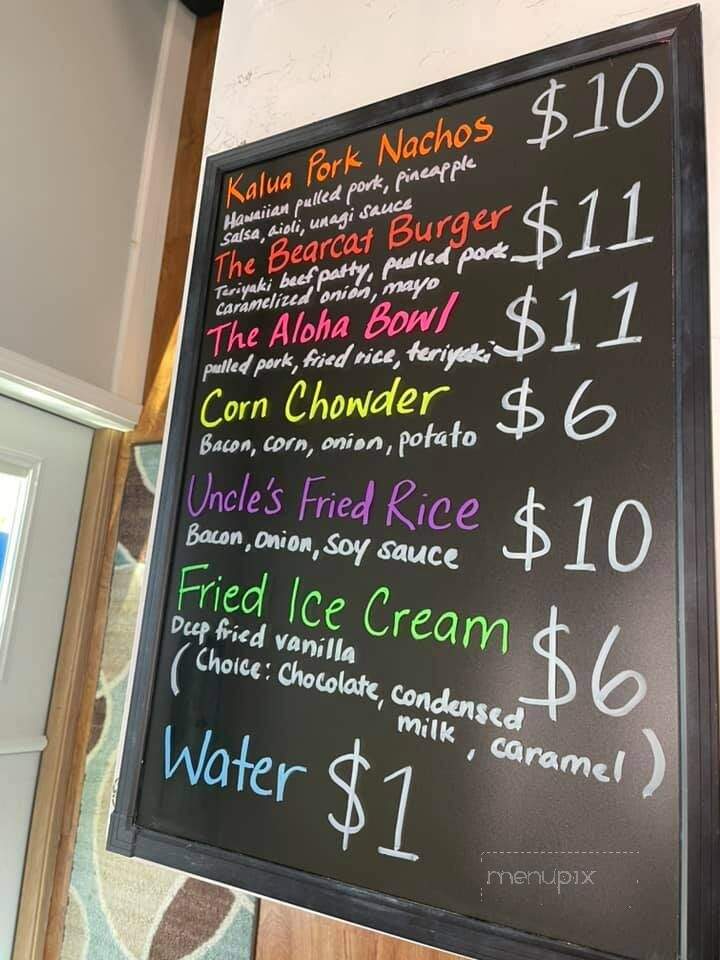 Kalua Pork Nachos $10
Hawaiian pulled pork, pineapple
salsa, aioli, unagi sauce
The Bearcat Burger $11
Teriyaki beef patty, pulled pork
caramelized onion, mayo
The Aloha Bowl $11
pulled pork, fried rice, teriyaki
Corn Chowder $6
Bacon, corn, onion, potato
Uncle's Fried Rice $10
Bacon, onion, soy sauce
Fried Ice Cream $6
Deep fried vanilla
(Choice: Chocolate, condensed
milk, caramel)
Water $1
menupix